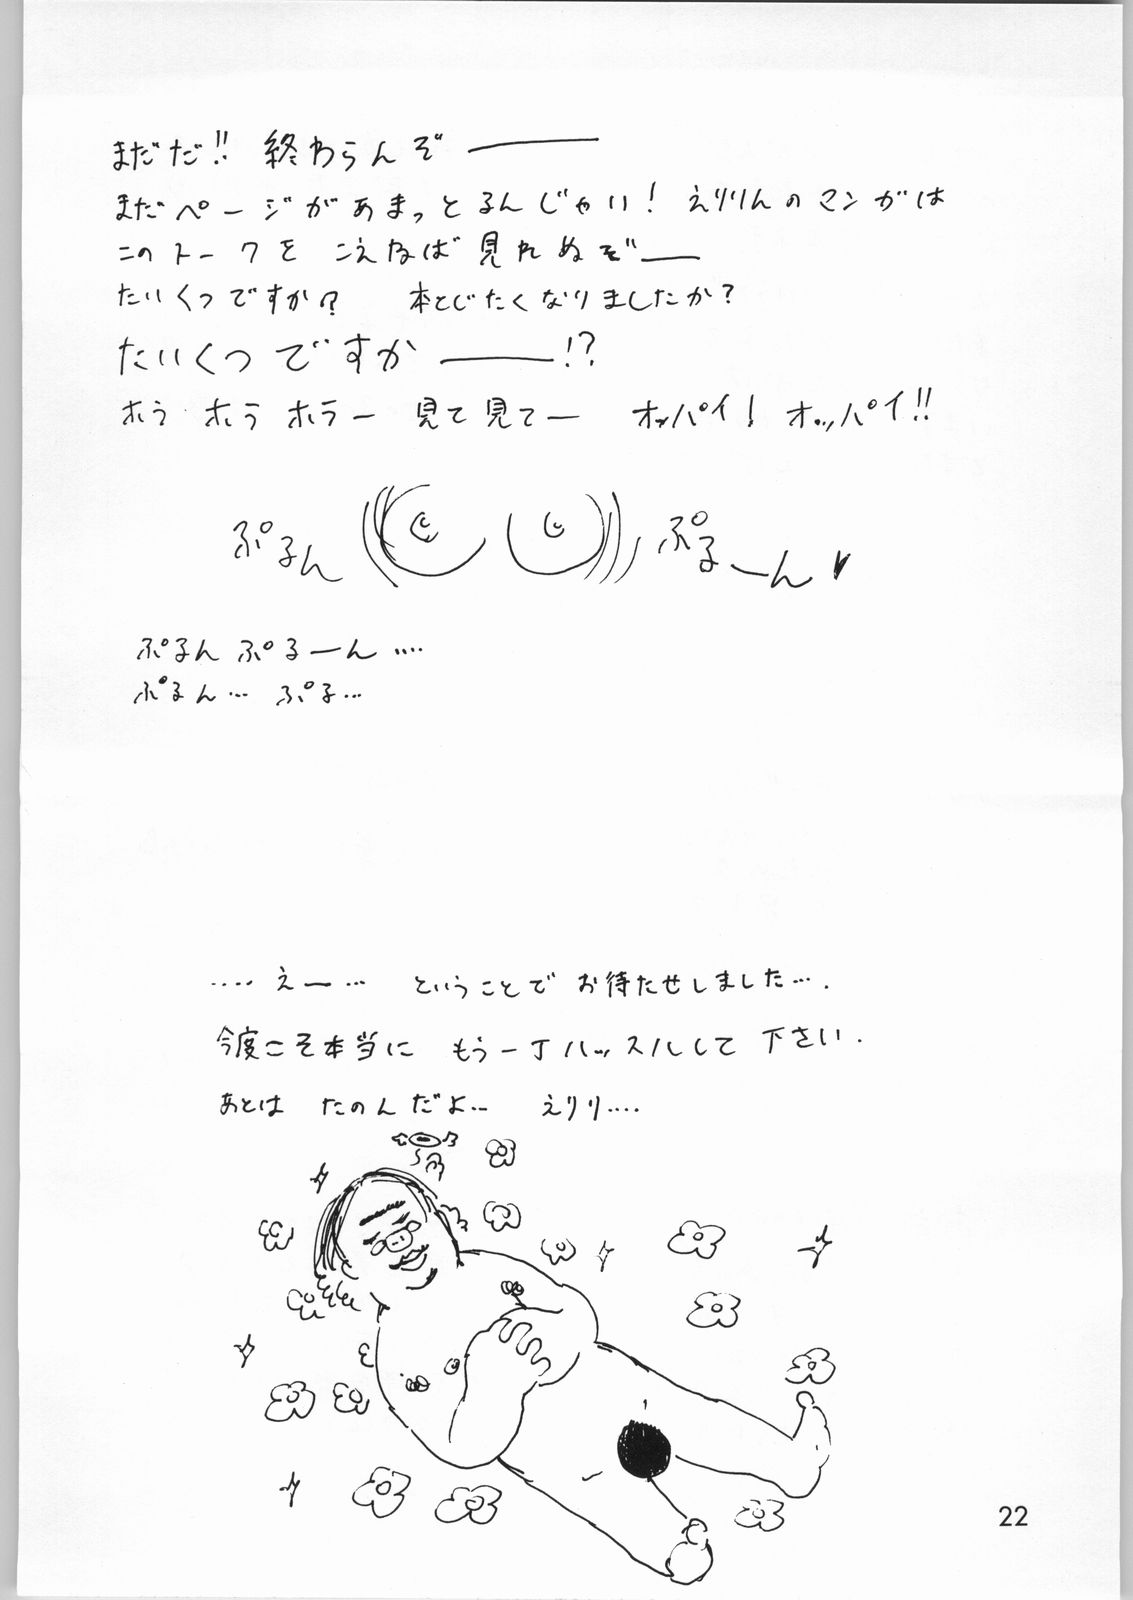 まだだ!! 終わらんぞ———
まだページがあまっとるんじゃい! えりりんのマンガは
このトークを こえねば見れぬぞ——
たいくつですか? 本とじたくなりましたか?
たいくつですか———!?
ホラ ホラ ホラー 見て見てー オッパイ! オッパイ!!
ぷるん ぷるーん♥
ぷるん ぷるーん‥‥
ぷるん… ぷる…
‥‥えー… ということで お待たせしました….
今度こそ本当に もう一丁ハッスルして下さい.
あとは たのんだよ… えりり‥‥
22